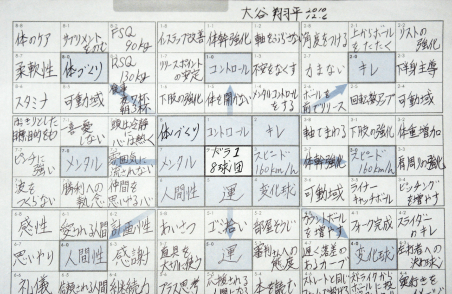 大谷 翔平 2010 12.6
体のケア サプリメントをのむ FSQ 90kg インステップ改善 体幹強化 軸をぶらさない 角度をつける 上からボールをたたく リストの強化
柔軟性 体づくり RSQ 130kg リリースポイントの安定 コントロール 不安をなくす 力まない キレ 下半身主導
スタミナ 可動域 食事 夜7杯 朝3杯 下肢の強化 体を開かない メンタルコントロールをする ボールを前でリリース 回転数アップ 可動域
はっきりとした目標、目的をもつ 一喜一憂しない 頭は冷静に心は熱く 体づくり コントロール キレ 軸でまわる 下肢の強化 体重増加
ピンチに強い メンタル 雰囲気に流されない メンタル ドラ1 8球団 スピード 160km/h 体幹強化 スピード 160km/h 肩周りの強化
波をつくらない 勝利への執念 仲間を思いやる心 人間性 運 変化球 可動域 ライナーキャッチボール ピッチングを増やす
感性 愛される人間 計画性 あいさつ ゴミ拾い 部屋そうじ カウントボールを増やす フォーク完成 スライダーのキレ
思いやり 人間性 感謝 道具を大切に使う 運 審判さんへの態度 遅く落差のあるカーブ 変化球 左打者への決め球
礼儀 信頼される人間 継続力 プラス思考 応援される人間になる 本を読む ストレートと同じ ストライクから